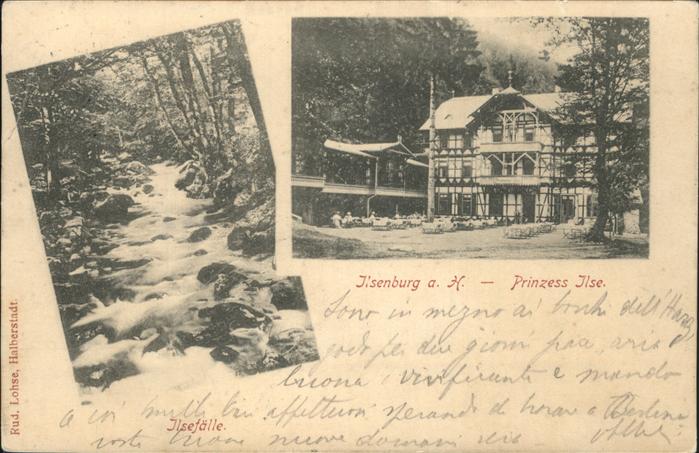 Ilsenburg a. H. — Prinzess Ilse.
Sono in mezzo ai boschi dell'Harz
godo per due giorni aria
buona vivificante e mando
a voi mille affettuosi sperando di trovare a Berlino
vostre buone nuove domani
Ilsefälle.
Rud. Lohse, Halberstadt.